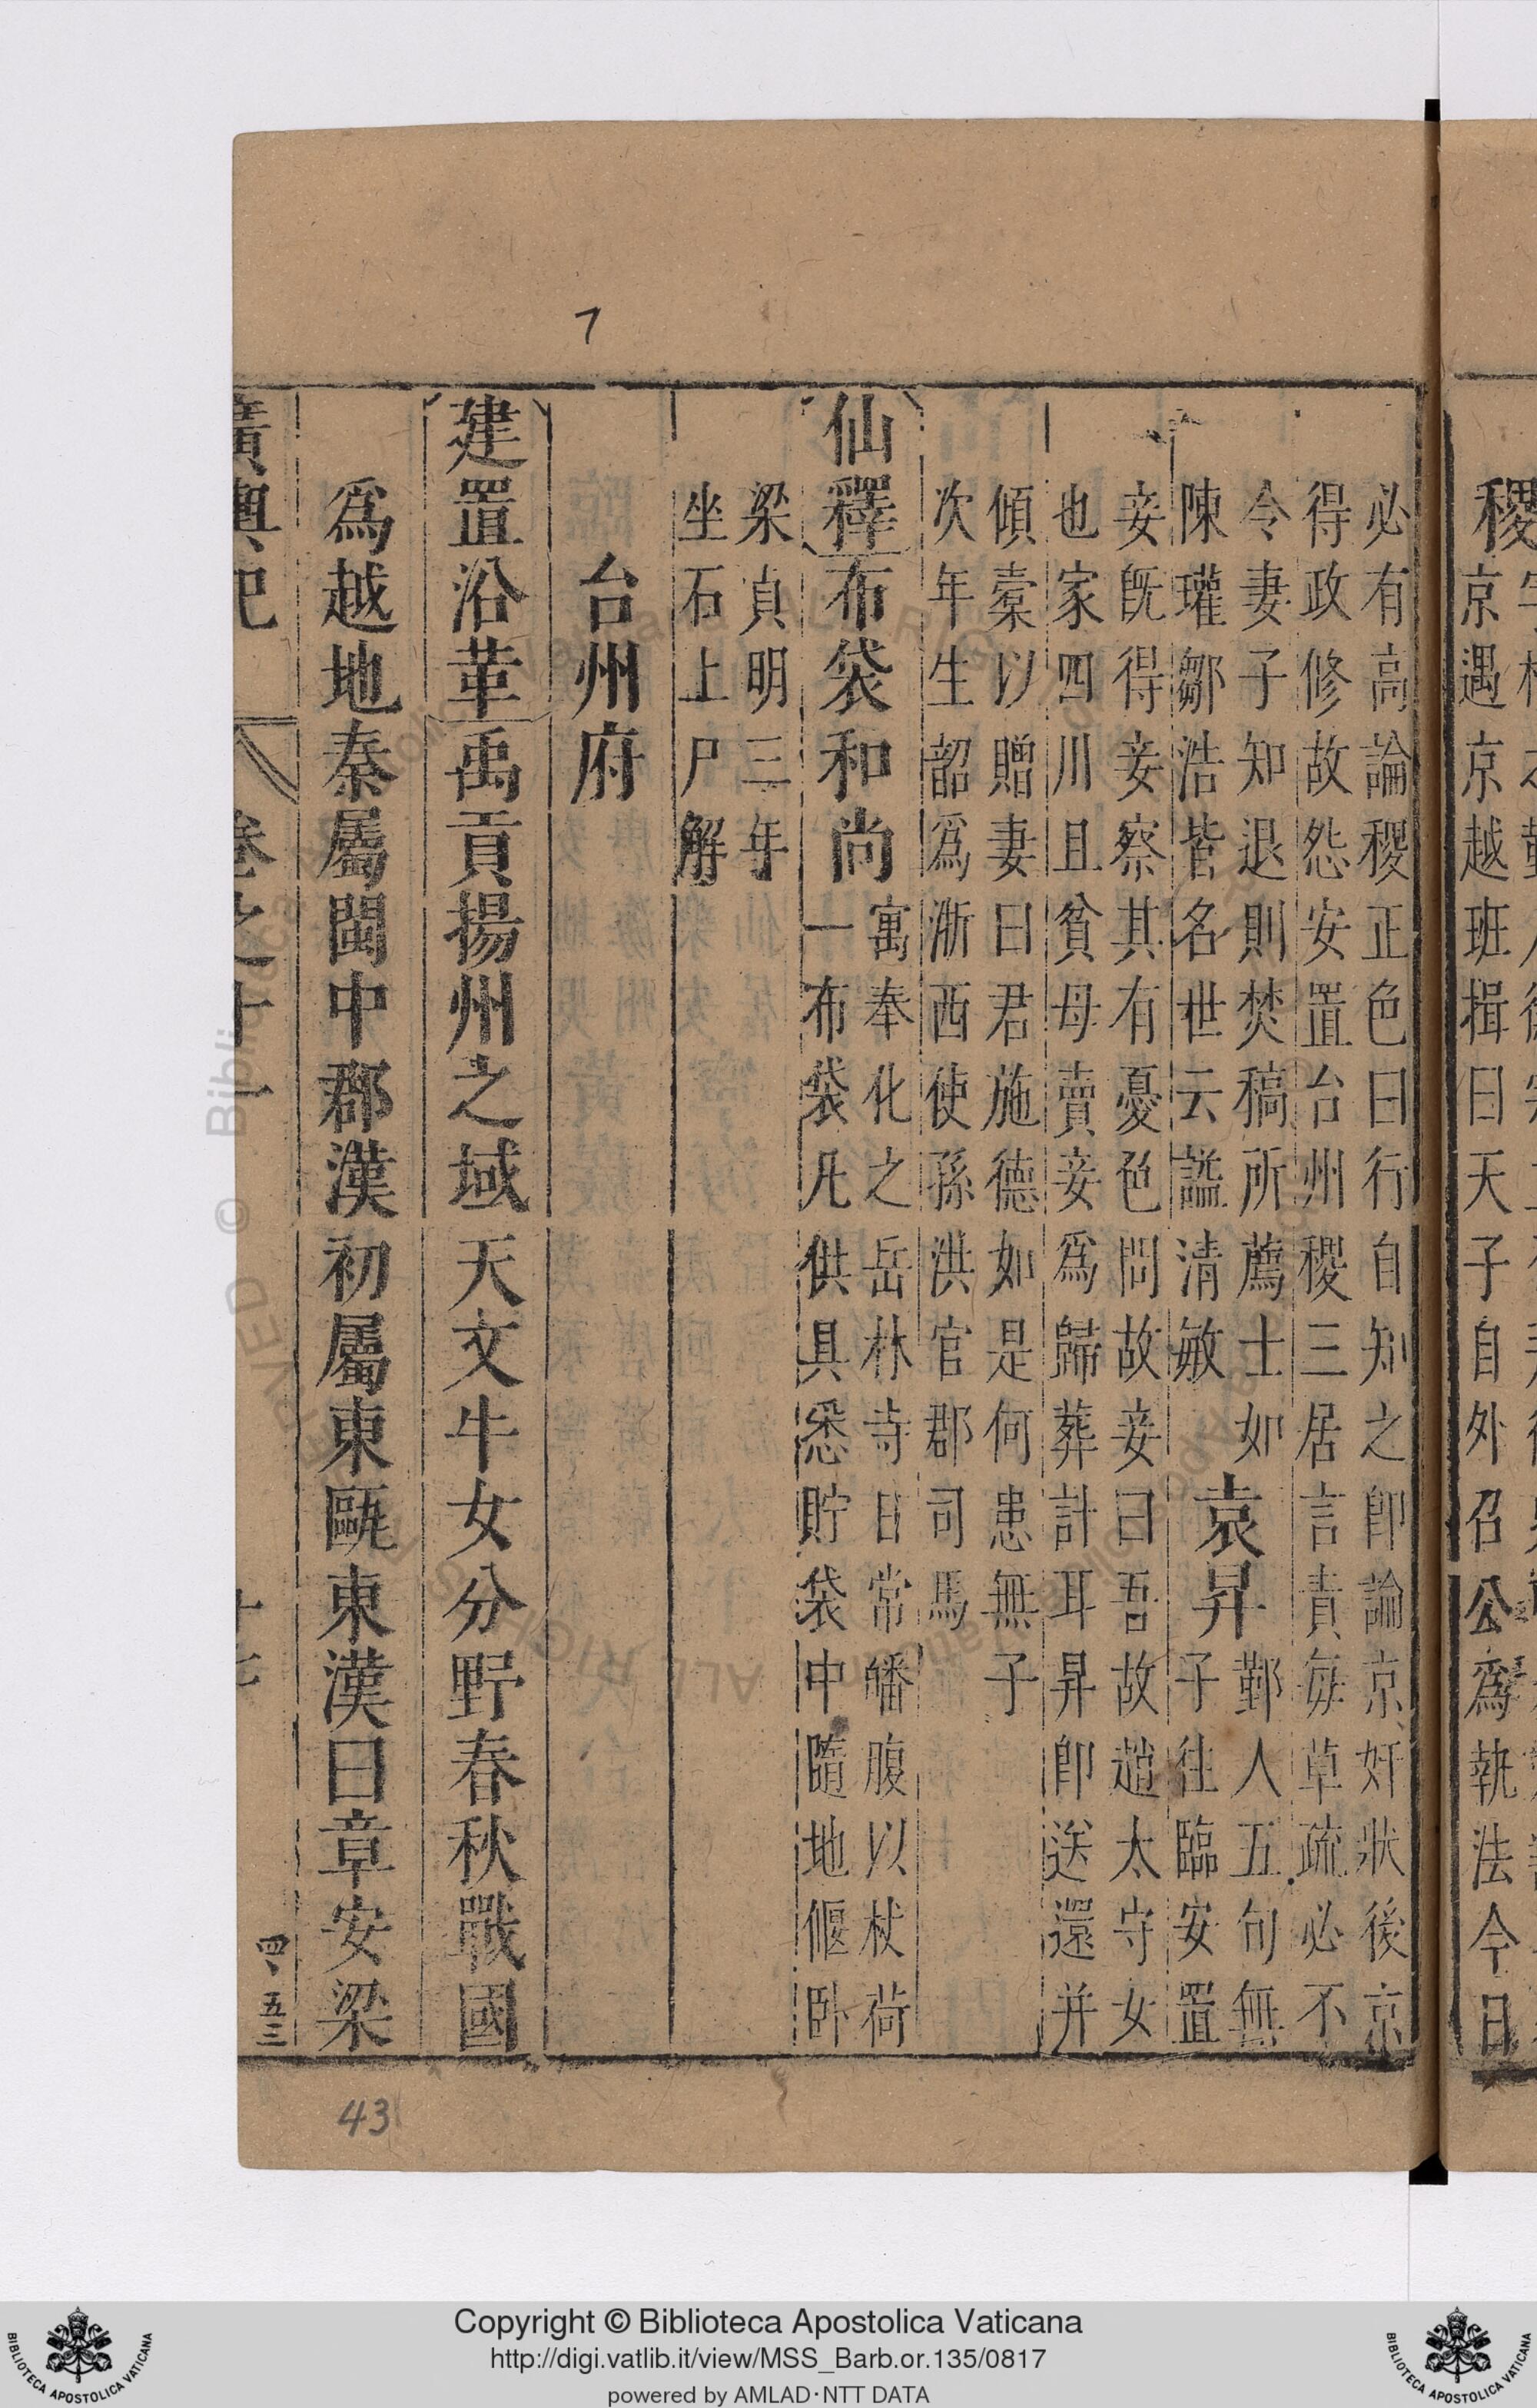 稷
京遇京越班揖曰天子自外召公爲執法今日
必有高論稷正色曰行自知之卽論京奸狀後京
得政修故怨安置台州稷三居言責每草疏必不
令妻子知退則焚稿所薦士如
陳瓘鄒浩皆名世云諡清敏
袁昇
鄞人五旬無
子往臨安置
妾旣得妾察其有憂色問故妾曰吾故趙太守女
也家四川且貧母賣妾爲歸葬計耳昇卽送還并
傾橐以贈妻曰君施德如是何患無子
次年生韶爲浙西使孫洪官郡司馬
仙釋
布袋和尚
寓奉化之岳林寺日常皤腹以杖荷
一布袋凡供具悉貯袋中隨地偃卧
梁貞明三年
坐石上尸解
台州府
建置沿革
禹貢揚州之域天文牛女分野春秋戰國
爲越地秦屬閩中郡漢初屬東甌東漢曰章安梁
廣輿記 卷之十一 十七
四、五三
7
43
Copyright © Biblioteca Apostolica Vaticana
http://digi.vatlib.it/view/MSS_Barb.or.135/0817
powered by AMLAD·NTT DATA
BIBLIOTECA APOSTOLICA VATICANA
BIBLIOTECA APOSTOLICA VATICANA